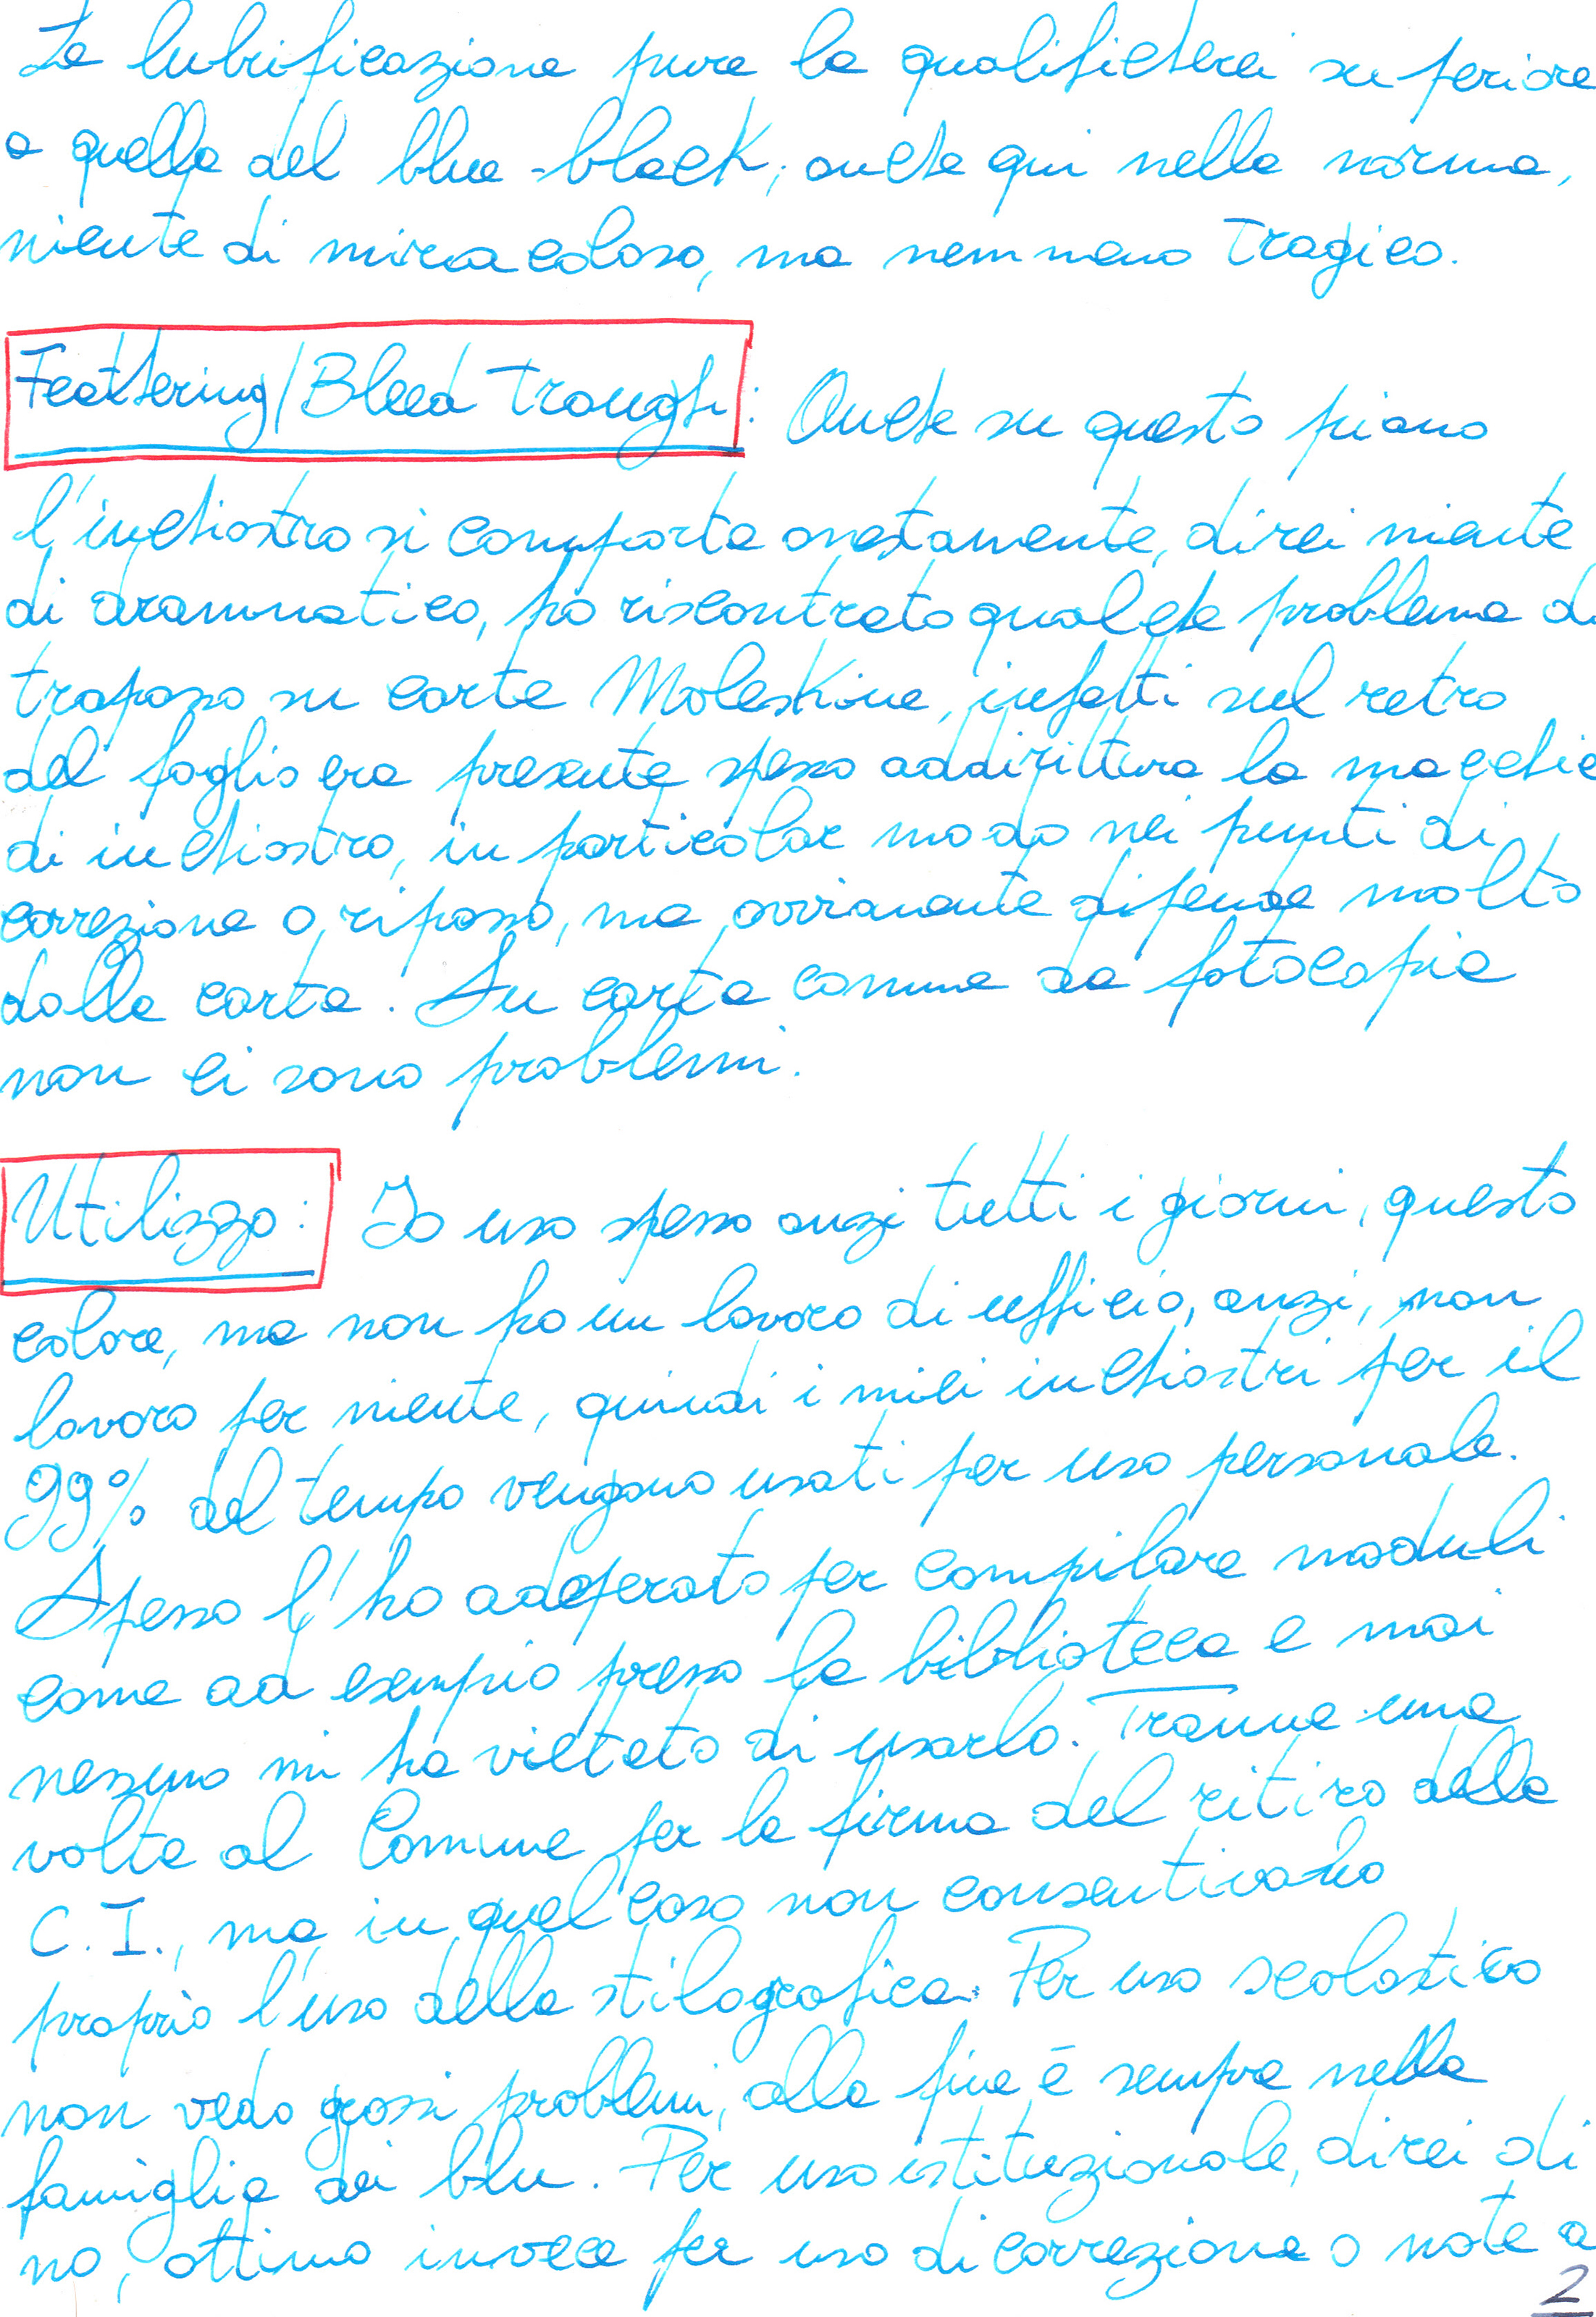 La lubrificazione pure la qualificherei superiore
a quella del blue-black, anche qui nella norma,
niente di miracoloso, ma nemmeno tragico.
Feathering/Bleed trough: Anche su questo piano
l'inchiostro si comporta onestamente, direi niente
di drammatico, ho riscontrato qualche problema di
trapasso su carta Moleskine, infatti sul retro
del foglio era presente spesso addirittura la macchia
di inchiostro, in particolar modo nei punti di
correzione o ripasso, ma ovviamente dipende molto
dalla carta. Su carta comune da fotocopia
non ci sono problemi.
Utilizzo: Io uso spesso anzi tutti i giorni, questo
colore, ma non ho un lavoro di ufficio, anzi, non
lavoro per niente, quindi i miei inchiostri per il
99% del tempo vengono usati per uso personale.
Spesso l'ho adoperato per compilare moduli
come ad esempio presso la biblioteca e mai
nessuno mi ha vietato di usarlo. Tranne una
volta al Comune per la firma del ritiro della
C.I., ma in quel caso non consentivano
proprio l'uso della stilografica. Per uso scolastico
non vedo grossi problemi, alla fine è sempre nella
famiglia dei blu. Per uso istituzionale, direi di
no, ottimo invece per uso di correzione o note a
2